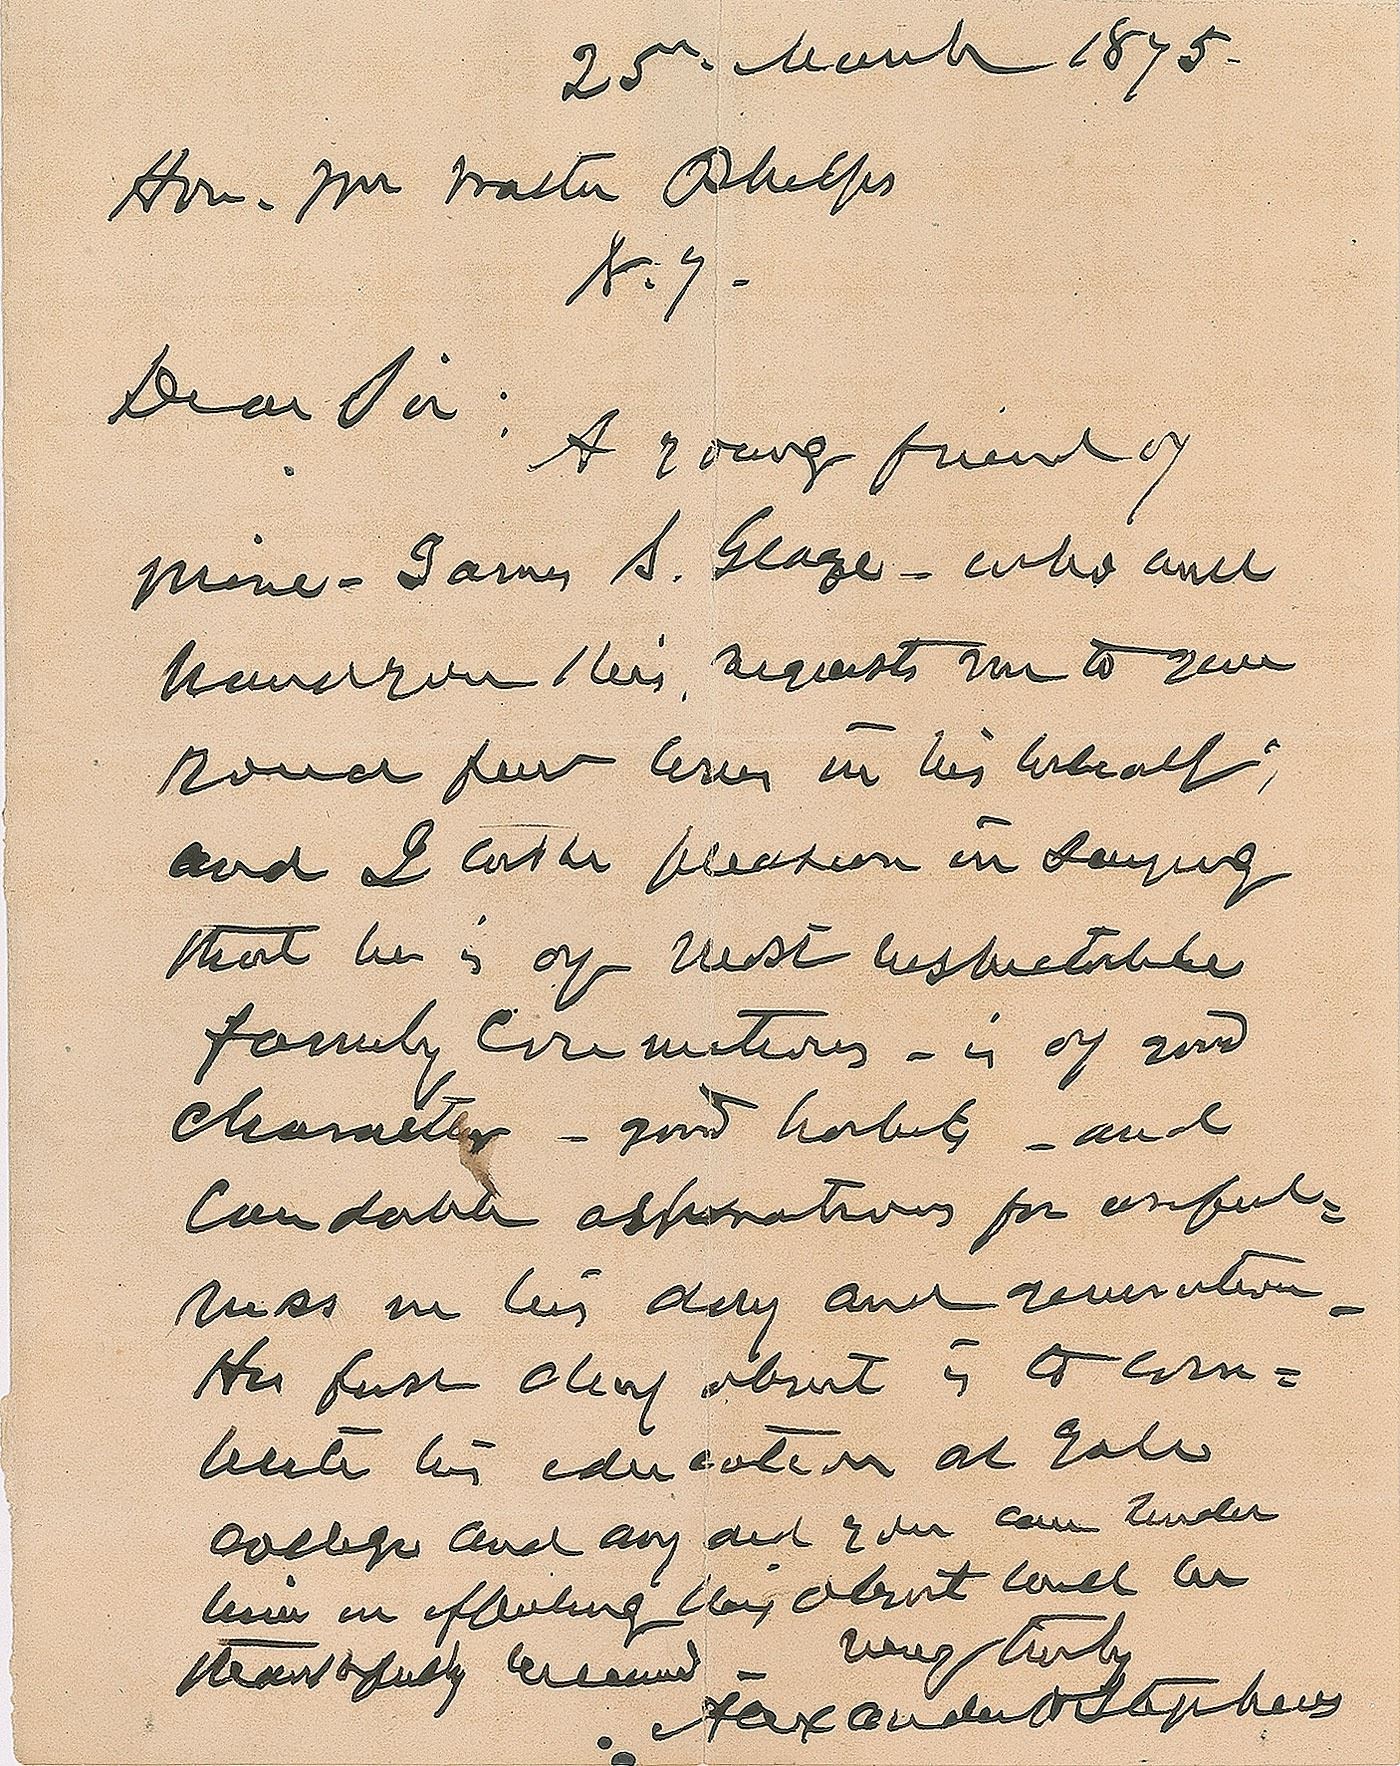 25th March 1875.
Hon. Wm Walter Phelps
N.Y.
Dear Sir:
A young friend of
mine - James S. Glaze - who will
hand you this, requests me to give
you a few lines in his behalf;
and I take pleasure in saying
that he is of most respectable
family connections - is of good
character - good habits - and
laudable aspirations for useful=
ness in his day and generation -
His object is to com=
plete his education at Yale
college and any aid you can render
him in effecting this object will be
thankfully received - very truly
Alexander H Stephens